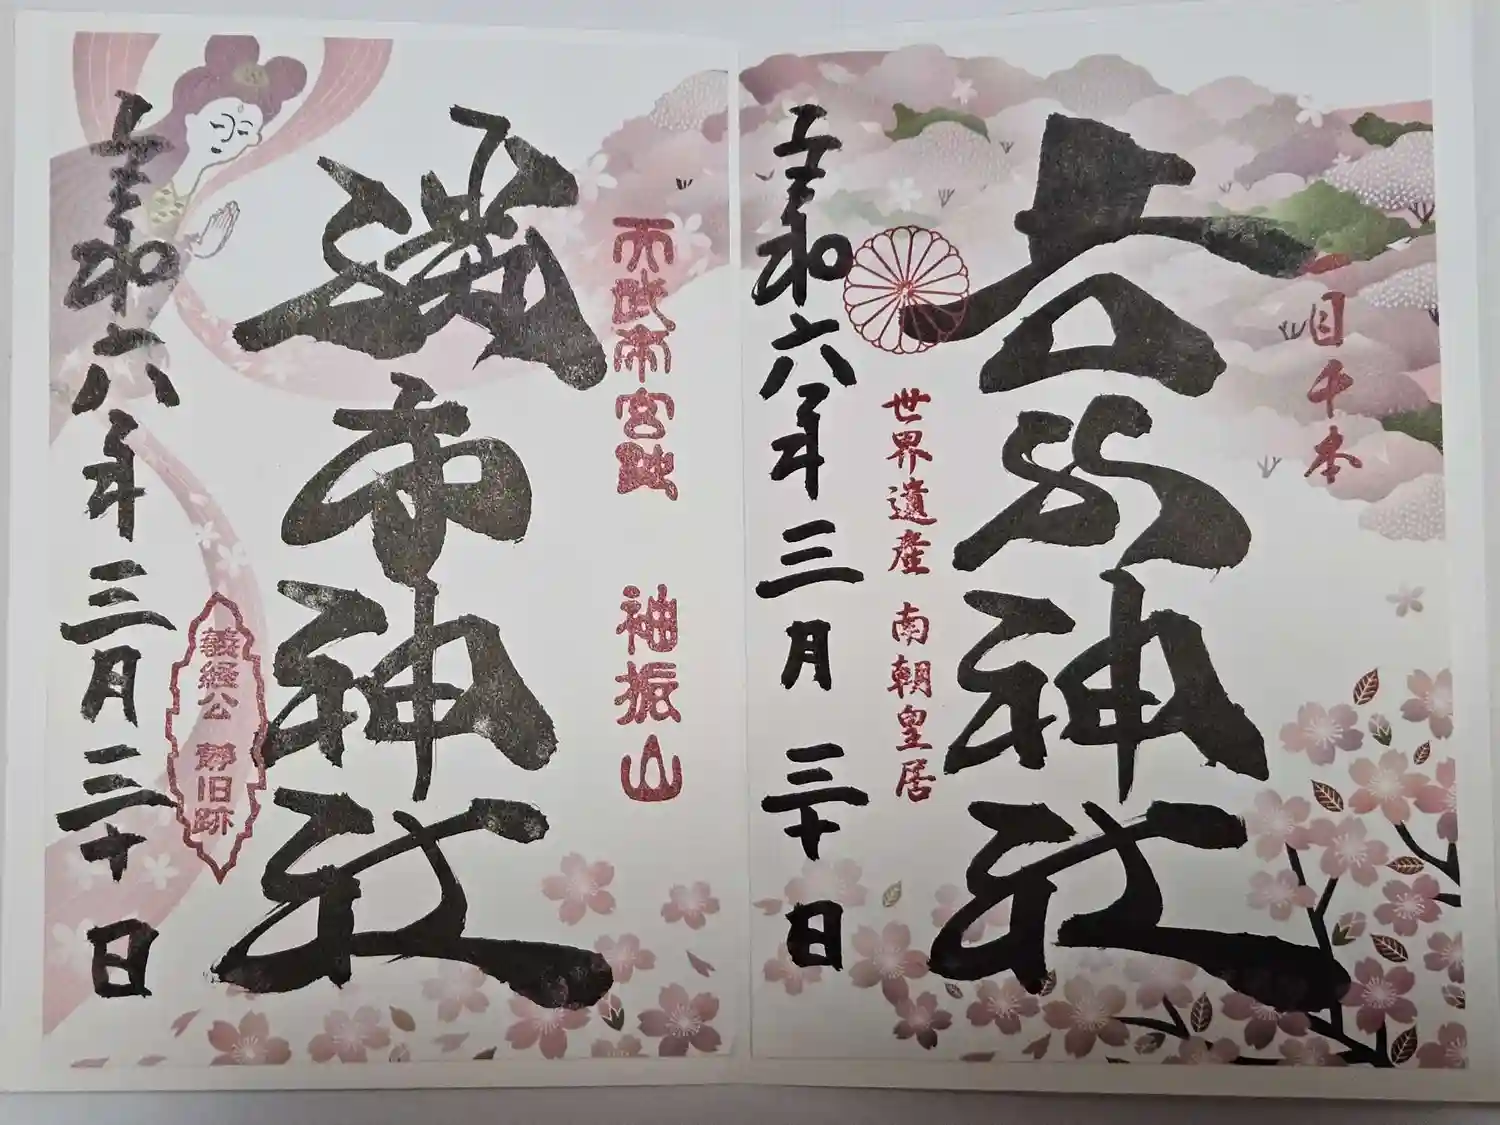 一目千本
吉水神社
世界遺産 南朝皇居
令和六年三月三十日
天武帝宮跡 袖振山
勝手神社
義経公 静旧跡
令和六年三月三十日